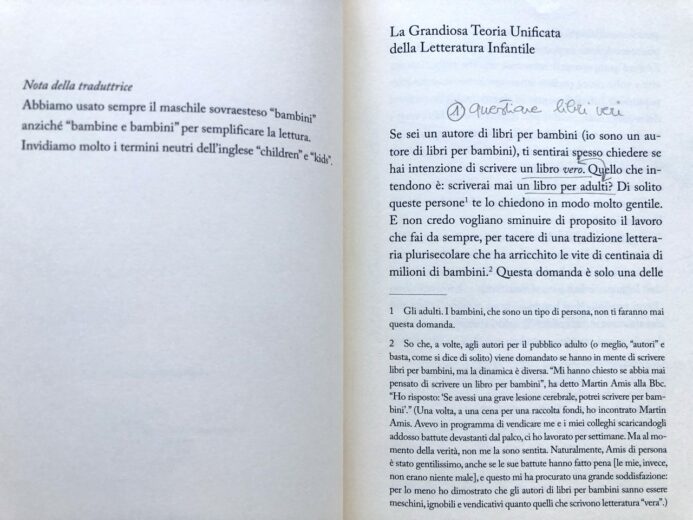 Nota della traduttrice
Abbiamo usato sempre il maschile sovraesteso “bambini”
anziché “bambine e bambini” per semplificare la lettura.
Invidiamo molto i termini neutri dell’inglese “children” e “kids”.
La Grandiosa Teoria Unificata
della Letteratura Infantile
① questione libri veri
Se sei un autore di libri per bambini (io sono un au-
tore di libri per bambini), ti sentirai spesso chiedere se
hai intenzione di scrivere un libro vero. Quello che in-
tendono è: scriverai mai un libro per adulti? Di solito
queste persone¹ te lo chiedono in modo molto gentile.
E non credo vogliano sminuire di proposito il lavoro
che fai da sempre, per tacere di una tradizione lettera-
ria plurisecolare che ha arricchito le vite di centinaia di
milioni di bambini.² Questa domanda è solo una delle
1 Gli adulti. I bambini, che sono un tipo di persona, non ti faranno mai
questa domanda.
2 So che, a volte, agli autori per il pubblico adulto (o meglio, “autori” e
basta, come si dice di solito) viene domandato se hanno in mente di scrivere
libri per bambini, ma la dinamica è diversa. “Mi hanno chiesto se abbia mai
pensato di scrivere un libro per bambini”, ha detto Martin Amis alla Bbc.
“Ho risposto: ‘Se avessi una grave lesione cerebrale, potrei scrivere per bam-
bini’.” (Una volta, a una cena per una raccolta fondi, ho incontrato Martin
Amis. Avevo in programma di vendicare me e i miei colleghi scaricandogli
addosso battute devastanti dal palco, ci ho lavorato per settimane. Ma al mo-
mento della verità, non me la sono sentita. Naturalmente, Amis di persona
è stato gentilissimo, anche se le sue battute hanno fatto pena [le mie, invece,
non erano niente male], e questo mi ha procurato una grande soddisfazione:
per lo meno ho dimostrato che gli autori di libri per bambini sanno essere
meschini, ignobili e vendicativi quanto quelli che scrivono letteratura “vera”.)